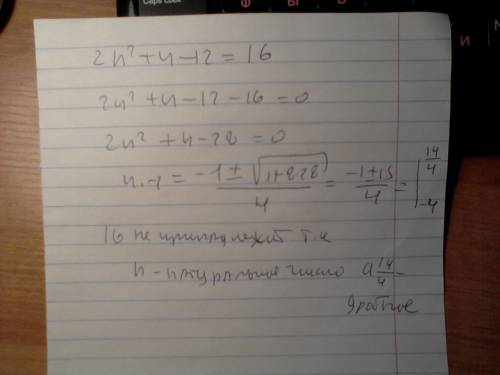 Caps Lock
Ф
Ы
В
И
2n² + n - 12 = 16
2n² + n - 12 - 16 = 0
2n² + n - 28 = 0
= \frac{-1 ± \sqrt{1+8·28}}{4} = \frac{-1±15}{4} = [ \frac{14}{4} -4
16 не принадлежит т.к
n - натуральное число а \frac{14}{4} -
дробное